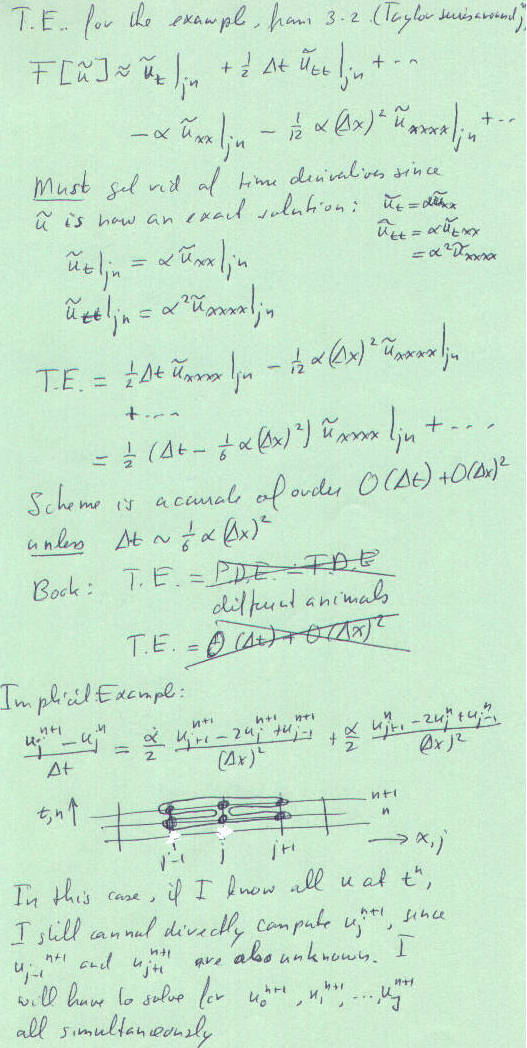 T.E. for the example, from 3.2 (Taylor series around jn)
F[ũ] ≈ ũ_t|_jn + 1/2 Δt ũ_tt|_jn + ...
- α ũ_xx|_jn - 1/12 α(Δx)² ũ_xxxx|_jn + ...
Must get rid of time derivatives since
ũ is now an exact solution: ũ_t = αũ_xx
ũ_tt = αũ_txx
= α²ũ_xxxx
ũ_t|_jn = α ũ_xx|_jn
ũ_tt|_jn = α² ũ_xxxx|_jn
T.E. = 1/2 Δt ũ_xxxx|_jn - 1/12 α(Δx)² ũ_xxxx|_jn
+ ....
= 1/2 (Δt - 1/6 α(Δx)²) ũ_xxxx|_jn + ...
Scheme is accurate of order O(Δt) + O(Δx)²
unless Δt ~ 1/6 α(Δx)²
Book: T.E. = P.D.E. - F.D.E
different animals
T.E. = O(Δt) + O(Δx)²
Implicit Example:
(u_j^{n+1} - u_j^n)/Δt = α/2 (u_{j+1}^{n+1} - 2u_j^{n+1} + u_{j-1}^{n+1})/(Δx)² + α/2 (u_{j+1}^n - 2u_j^n + u_{j-1}^n)/(Δx)²
t,n ↑ n+1
n
→ x,j
j-1 j j+1
In this case, if I know all u at t^n,
I still cannot directly compute u_j^{n+1}, since
u_{j-1}^{n+1} and u_{j+1}^{n+1} are also unknown. I
will have to solve for u_0^{n+1}, u_1^{n+1}, ..., u_J^{n+1}
all simultaneously